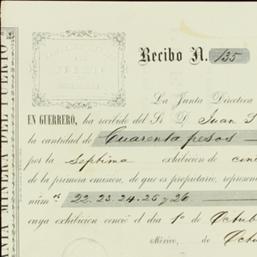 Recibo N. 135
La Junta Directiva
EN GUERRERO, ha recibido del Sr. D. Juan
la cantidad de Cuarenta pesos
por la Septima exhibicion de
de la primera emision, de que es propietario, represen
núm s 22.23.24.25 y 26
cuya exhibicion venció el dia 1º de
México, de
MINERA DEL